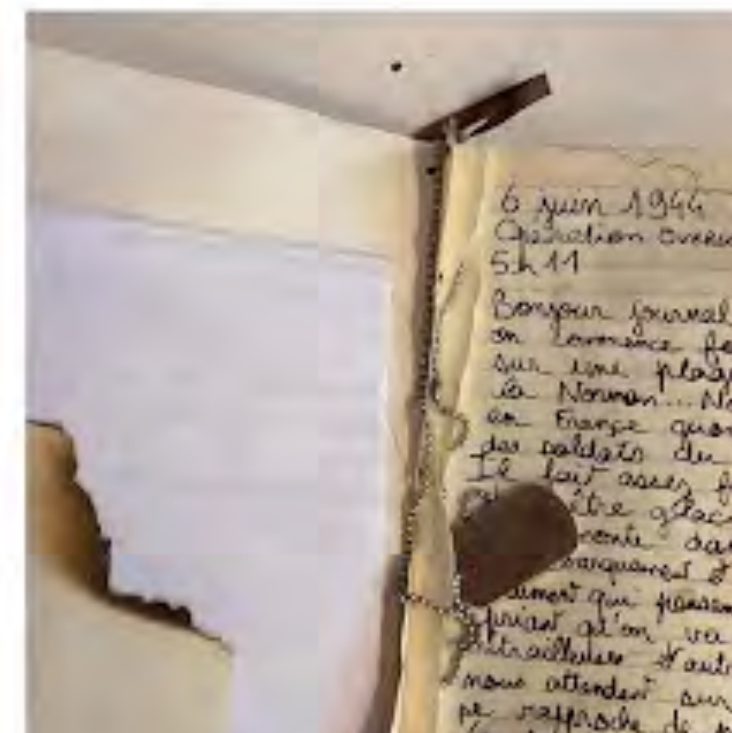 6 juin 1944
Opération Over
5h11
Bonjour journal
on commence
sur une plag
la Norman... No
en France quon
des soldats du
Il fait assez f
être glac
monte dan
barquement et
qui pensen
qu'on va
mitrailleuses d'aut
nous attendent sur
se rapproche de